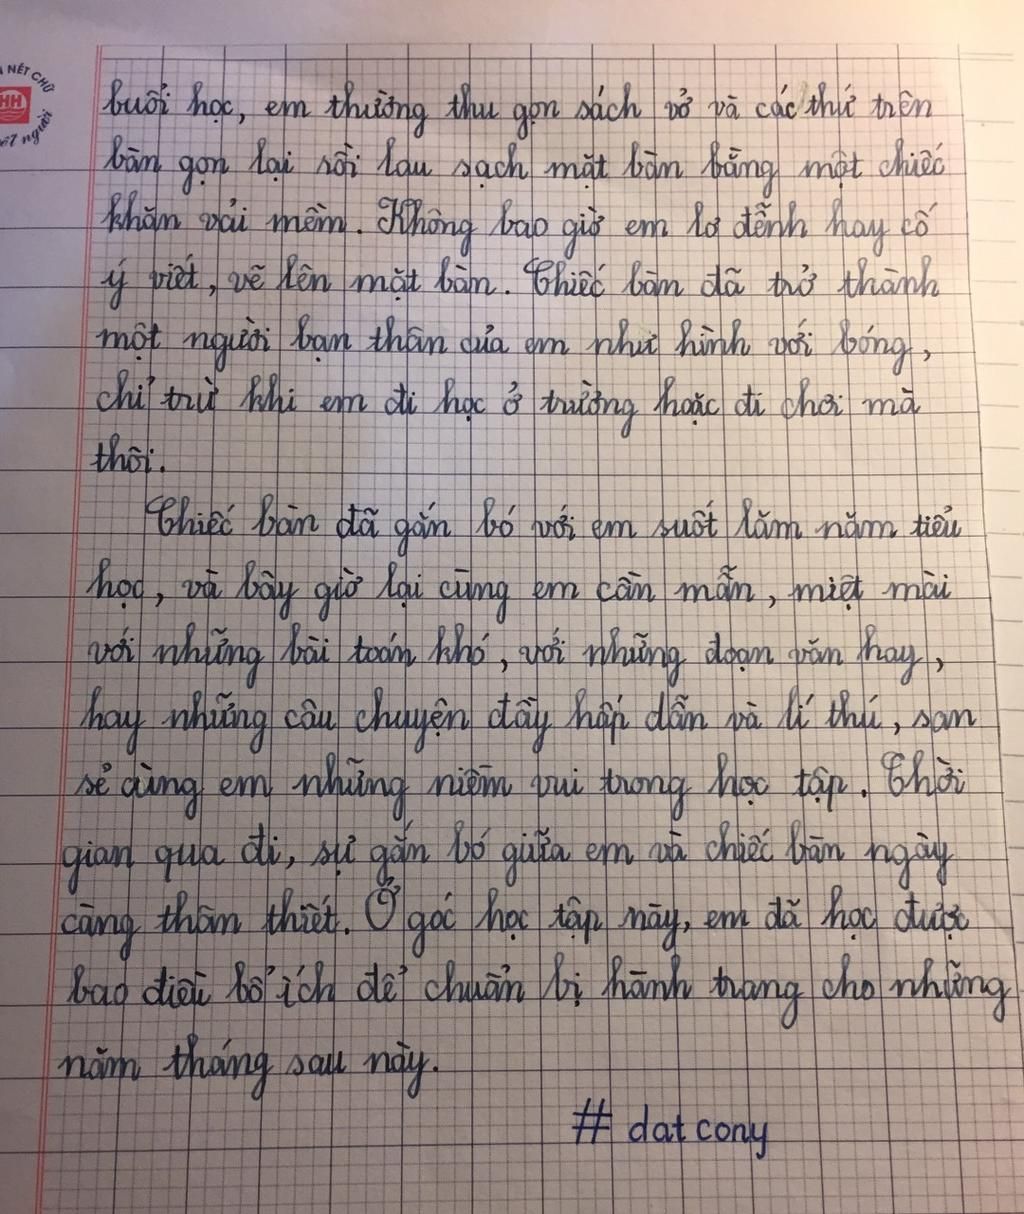 NÉT CHỮ
HH
người
buổi học, em thường thu gọn sách vở và các thứ trên
bàn gọn lại rồi lau sạch mặt bàn bằng một chiếc
khăn vải mềm. Không bao giờ em lơ đễnh hay cố
ý viết, vẽ lên mặt bàn. Chiếc bàn đã trở thành
một người bạn thân của em như hình với bóng,
chỉ trừ khi em đi học ở trường hoặc đi chơi mà
thôi.
Chiếc bàn đã gắn bó với em suốt lăm năm tiểu
học, và bây giờ lại cùng em cần mẫn, miệt mài
với những bài toán khó, với những đoạn văn hay,
hay những câu chuyện đầy hấp dẫn và lí thú, san
sẻ cùng em những niềm vui trong học tập. Thời
gian qua đi, sự gắn bó giữa em và chiếc bàn ngày
càng thân thiết. Ở góc học tập này, em đã học được
bao điều bổ ích để chuẩn bị hành trang cho những
năm tháng sau này.
# datcony